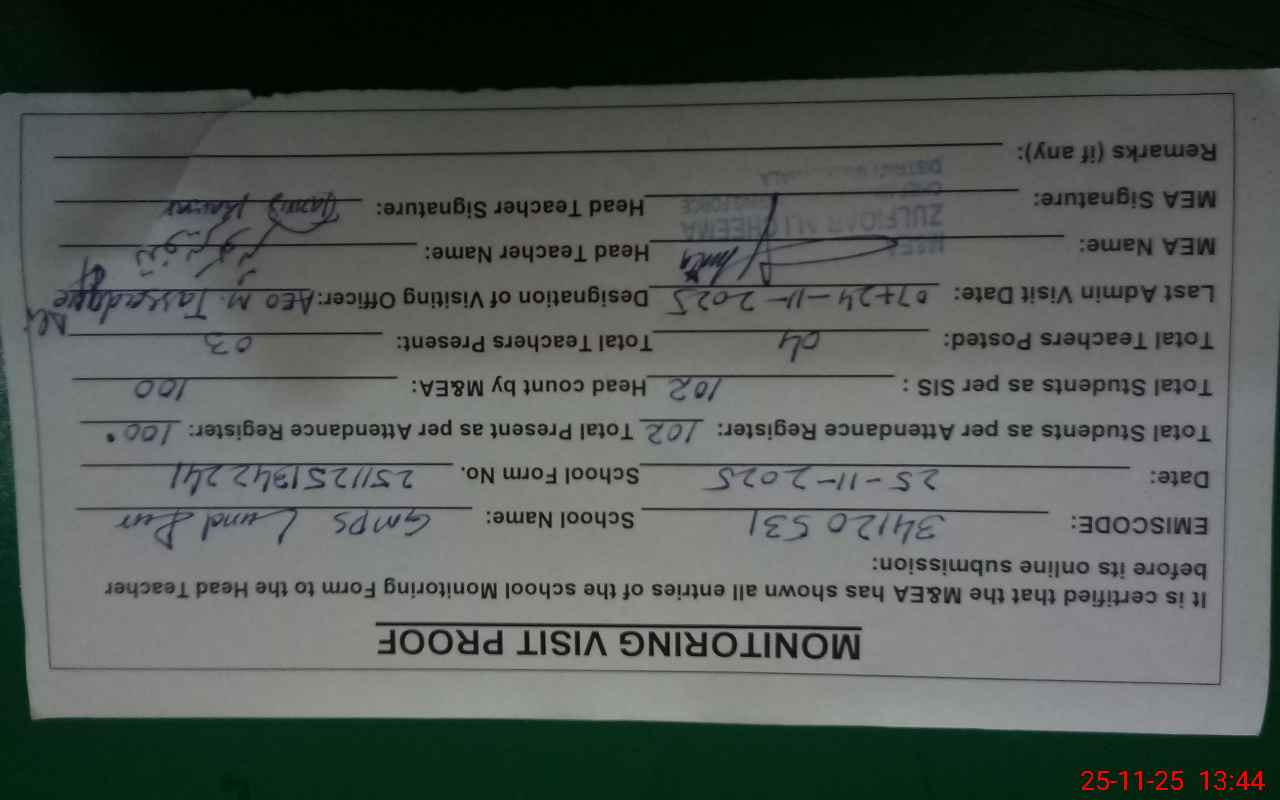 MONITORING VISIT PROOF
It is certified that the M&EA has shown all entries of the school Monitoring Form to the Head Teacher
before its online submission:
EMISCODE: 34120531 School Name: GMPS Lund Pur
Date: 25-11-2025 School Form No. 2511251342241
Total Students as per Attendance Register: 102 Total Present as per Attendance Register: 100
Total Students as per SIS : 102 Head count by M&EA: 100
Total Teachers Posted: 04 Total Teachers Present: 03
Last Admin Visit Date: 07+24-11-2025 Designation of Visiting Officer: AEO M. Tassadaque
MEA Name: Head Teacher Name:
ZULFIQAR ALI CHEEMA
MEA Signature: Head Teacher Signature:
Remarks (if any):
25-11-25 13:44